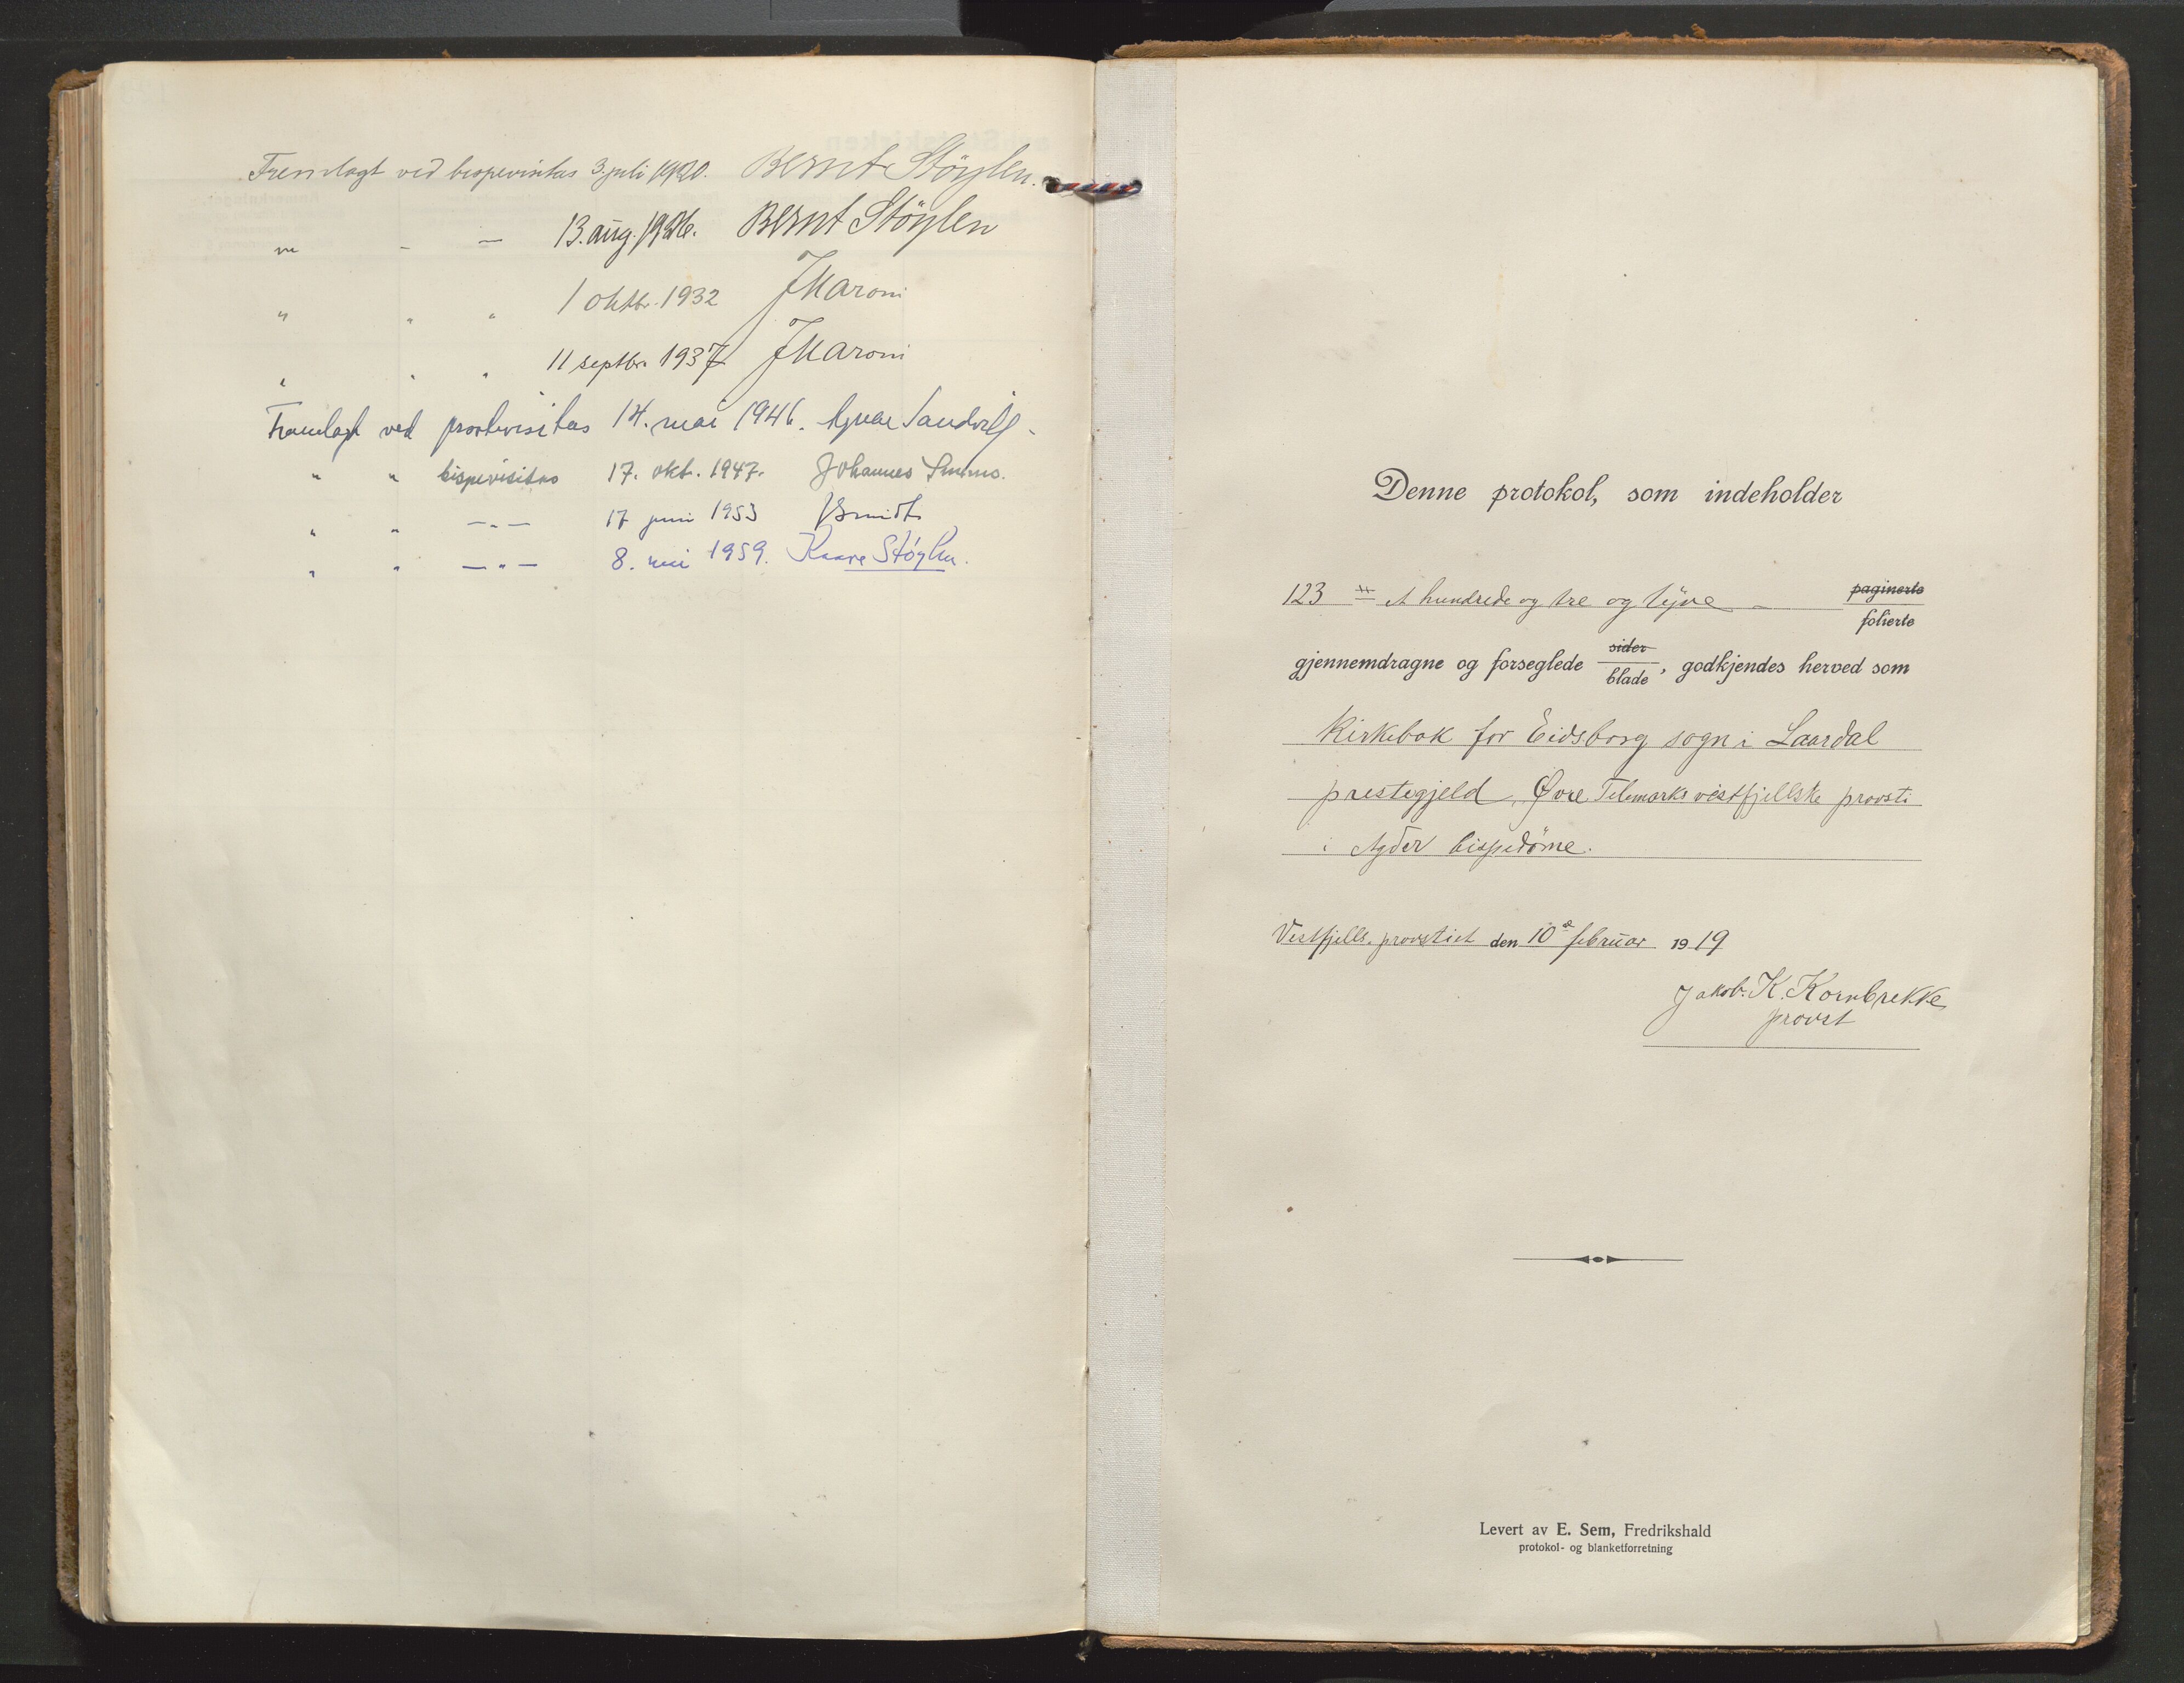 Fremlagt ved bispevisitas 3. juli 1920. Bernt Støylen.
" - — 13. aug. 1926. Bernt Støylen
" " " 1 oktbr. 1932 J Maroni
" " " 11 septbr. 1937 J Maroni
Framlagt ved prostevisitas 14. mai 1946.
" " bispevisitas 17. okt. 1947. Johannes Smemo.
" " —"— 17 juni 1953 J Smidt
" " —"— 8. mai 1959. Kaare Støylen.
Denne protokol, som indeholder
123 = et hundrede og tre og tyve — paginerte
folierte
gjennemdragne og forseglede sider blade, godkjendes herved som
Kirkebok for Eidsborg sogn i Laardal
prestegjeld, Øvre Telemarks vestfjellske provsti
i Agder bispedøme.
Vestfjells. provstiet den 10de februar 1919
Jakob. K. Kornbrekke
provst
Levert av E. Sem, Fredrikshald
protokol- og blanketforretning